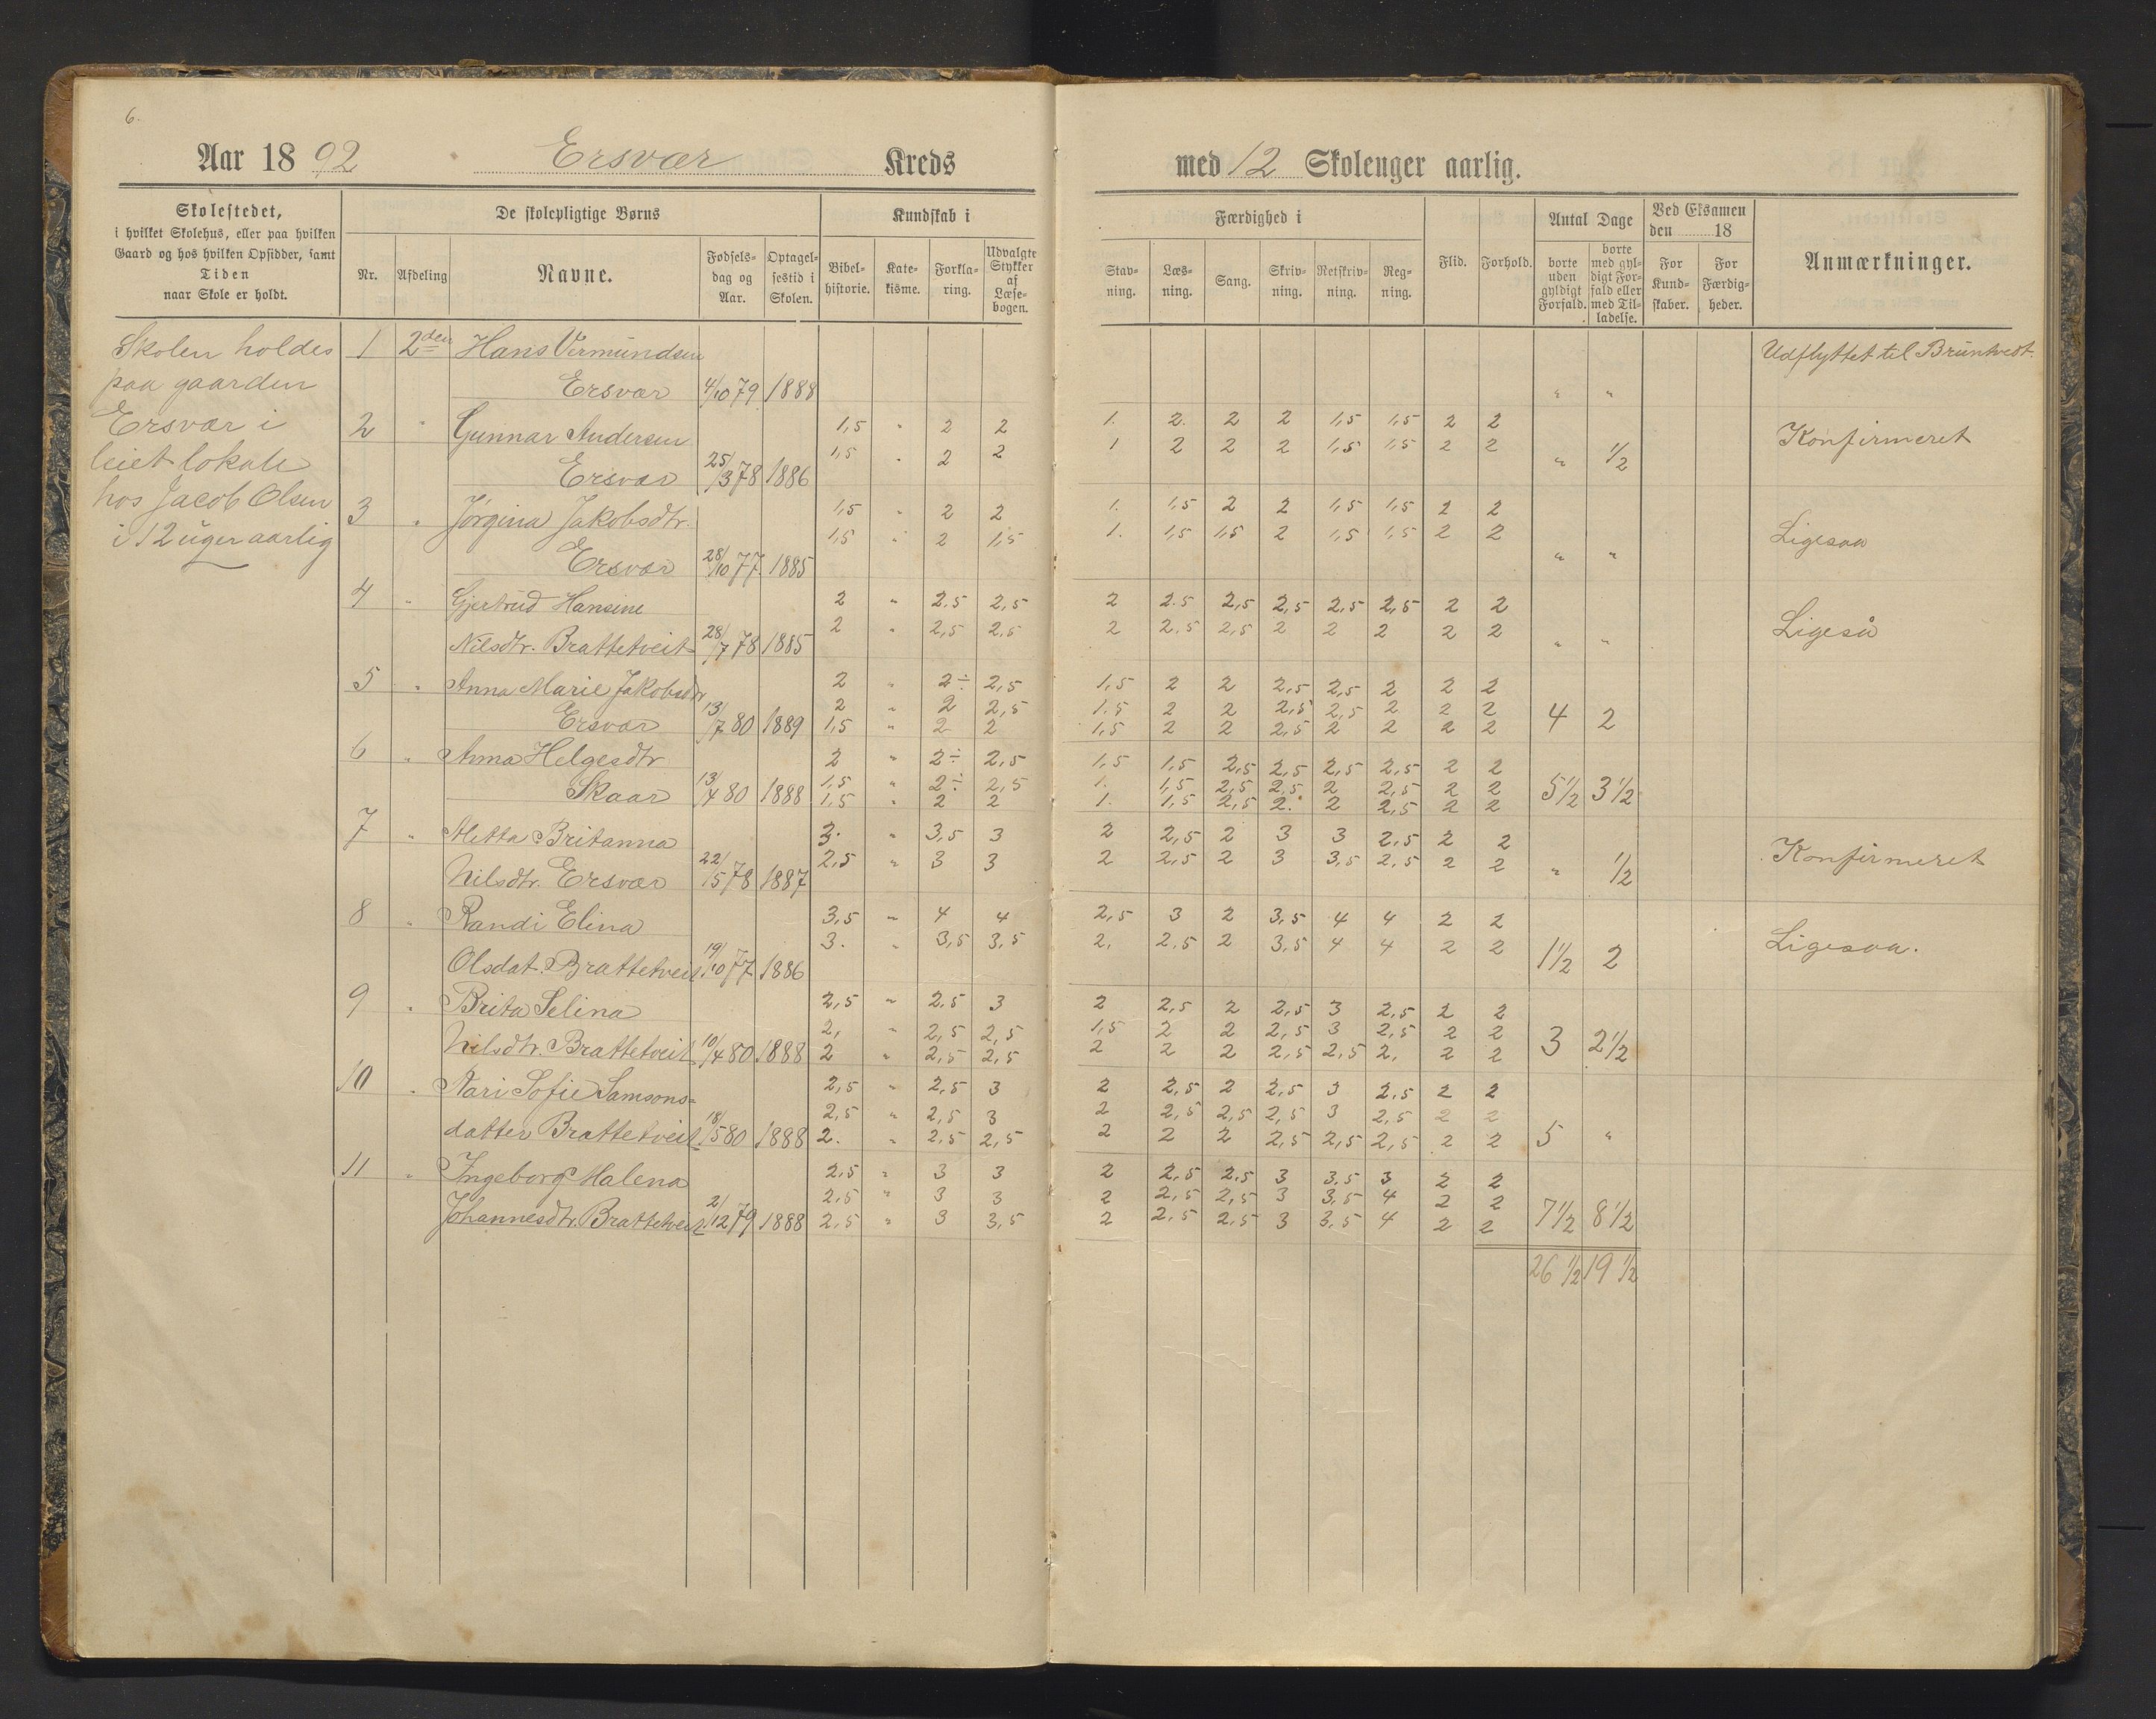 6.
Aar 1892 Ersvær Kreds
med 12 Skoleuger aarlig.
Skolestedet,
i hvilket Skolehus, eller paa hvilken
Gaard og hos hvilken Opsidder, samt
Tiden
naar Skole er holdt.
De skolepligtige Børns
Nr. Afdeling Navne. Fødselsdag og Aar. Optagelsestid i Skolen.
Kundskab i
Bibelhistorie. Katekisme. Forklaring. Udvalgte Stykker af Læsebogen.
Færdighed i
Stavning. Læsning. Sang. Skrivning. Retskrivning. Regning.
Flid. Forhold.
Antal Dage
borte uden gyldigt Forfald. borte med gyldigt Forfald eller med Tilladelse.
Ved Eksamen
den 18
For Kundskaber. For Færdigheder.
Anmærkninger.
Skolen holdes
paa gaarden
Ersvær i
leiet lokale
hos Jacob Olsen
i 12 uger aarlig
1 2den Hans Vermundsen Udflyttet til Bruntvest.
Ersvær 4/10 79 1888 " "
2 " Gunnar Andersen 1,5 " 2 2 1. 2. 2 2 1,5 1,5 2 2 Konfirmeret
1,5 " 2 2 1 2 2 2 1,5 1,5 2 2
Ersvær 25/3 78 1886 " 1/2
3 " Jørgina Jakobsdtr. 1,5 " 2 2 1. 1,5 2 2 1,5 1,5 2 2
1,5 " 2 1,5 1. 1,5 1,5 2 1,5 1,5 2 2 Ligesaa
Ersvær 28/10 77 1885 " "
4 " Gjertrud Hansine 2 " 2.5 2,5 2 2.5 2,5 2,5 2,5 2,5 2 2
2 " 2,5 2,5 2 2,5 2,5 2 2 2 2 2 Ligeså
Nilsdtr. Brattetveit 28/7 78 1885 " "
5 " Anna Marie Jakobsdtr 2 " 2÷ 2,5 1,5 2 2 2,5 2,5 2 2 2
2 " 2 2,5 1.5 2 2 2,5 2,5 2 2 2
Ersvær 13/7 80 1889 1,5 " 2 2 1,5 2 2 2,5 2 2 2 2 4 2
6 " Anna Helgesdtr 2 " 2÷ 2,5 1,5 1,5 2,5 2,5 2,5 2,5 2 2
1,5 " 2÷ 2,5 1. 1,5 2,5 2,5 2 2,5 2 2
Skaar 13/4 80 1888 1,5 " 2 2 1. 1,5 2,5 2. 2 2,5 2 2 5 1/2 3 1/2
7 " Metta Britanna 3. " 3,5 3 2 2,5 2 3 3 2,5 2 2
2,5 " 3 3 2 2,5 2 3 3,5 2,5 2 2 Konfirmeret
Nilsdtr. Ersvær 22/5 78 1887 " 1/2
8 " Randi Elina 3,5 " 4 4 2,5 3 2 3,5 4 4 2 2
3. " 3,5 3,5 2, 2,5 2 3,5 4 4 2 2 Ligesaa.
Olsdat. Brattetveit 19/10 77 1886 1 1/2 2
9 " Brita Selina 2,5 " 2,5 3 2 2,5 2 2,5 3 2,5 2 2
2, " 2,5 2,5 1,5 2 2 2,5 3 2,5 2 2
Nilsdtr. Brattetveit 10/4 80 1888 2 " 2,5 2,5 2 2 2 2,5 2,5 2, 2 2 3 2 1/2
10 " Kari Sofie Samsons= 2,5 " 2,5 3 2 2,5 2 2,5 3 2,5 2 2
2,5 " 2,5 3 2 2,5 2,5 2,5 3 2,5 2 2
datter Brattetveit 18/5 80 1888 2. " 2,5 2,5 2 2 2 2,5 2,5 2,5 2 2 5 "
11 " Ingeborg Malena 2,5 " 3 3 2 2,5 2,5 3 3,5 3 2 2
2,5 " 3 3 2 2,5 2,5 3 3,5 4 2 2
Johannesdtr. Brattetveit 2/12 79 1888 2,5 " 3 3,5 2 2,5 2,5 3 3,5 4 2 2 7 1/2 8 1/2
26 1/2 19 1/2